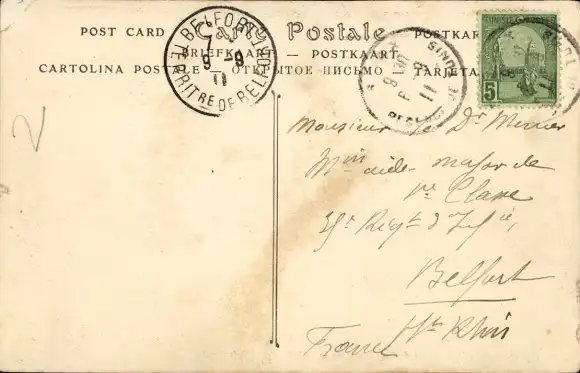 POST CARD
Carte Postale
POSTKAR
BRIEFKAART — POSTKAART
CARTOLINA POSTALE — ОТКРЫТОЕ ПИСЬМО
TARJETA
BELFORT
9 - 9
11
TERRITRE DE BELFORT
TUNIS
6 - 9
11
TUNISIE
5
Monsieur le Dr Mercier
Min aide-major de
1re Classe
35e Régt d'Infie
Belfort
Ht Rhin
France
2